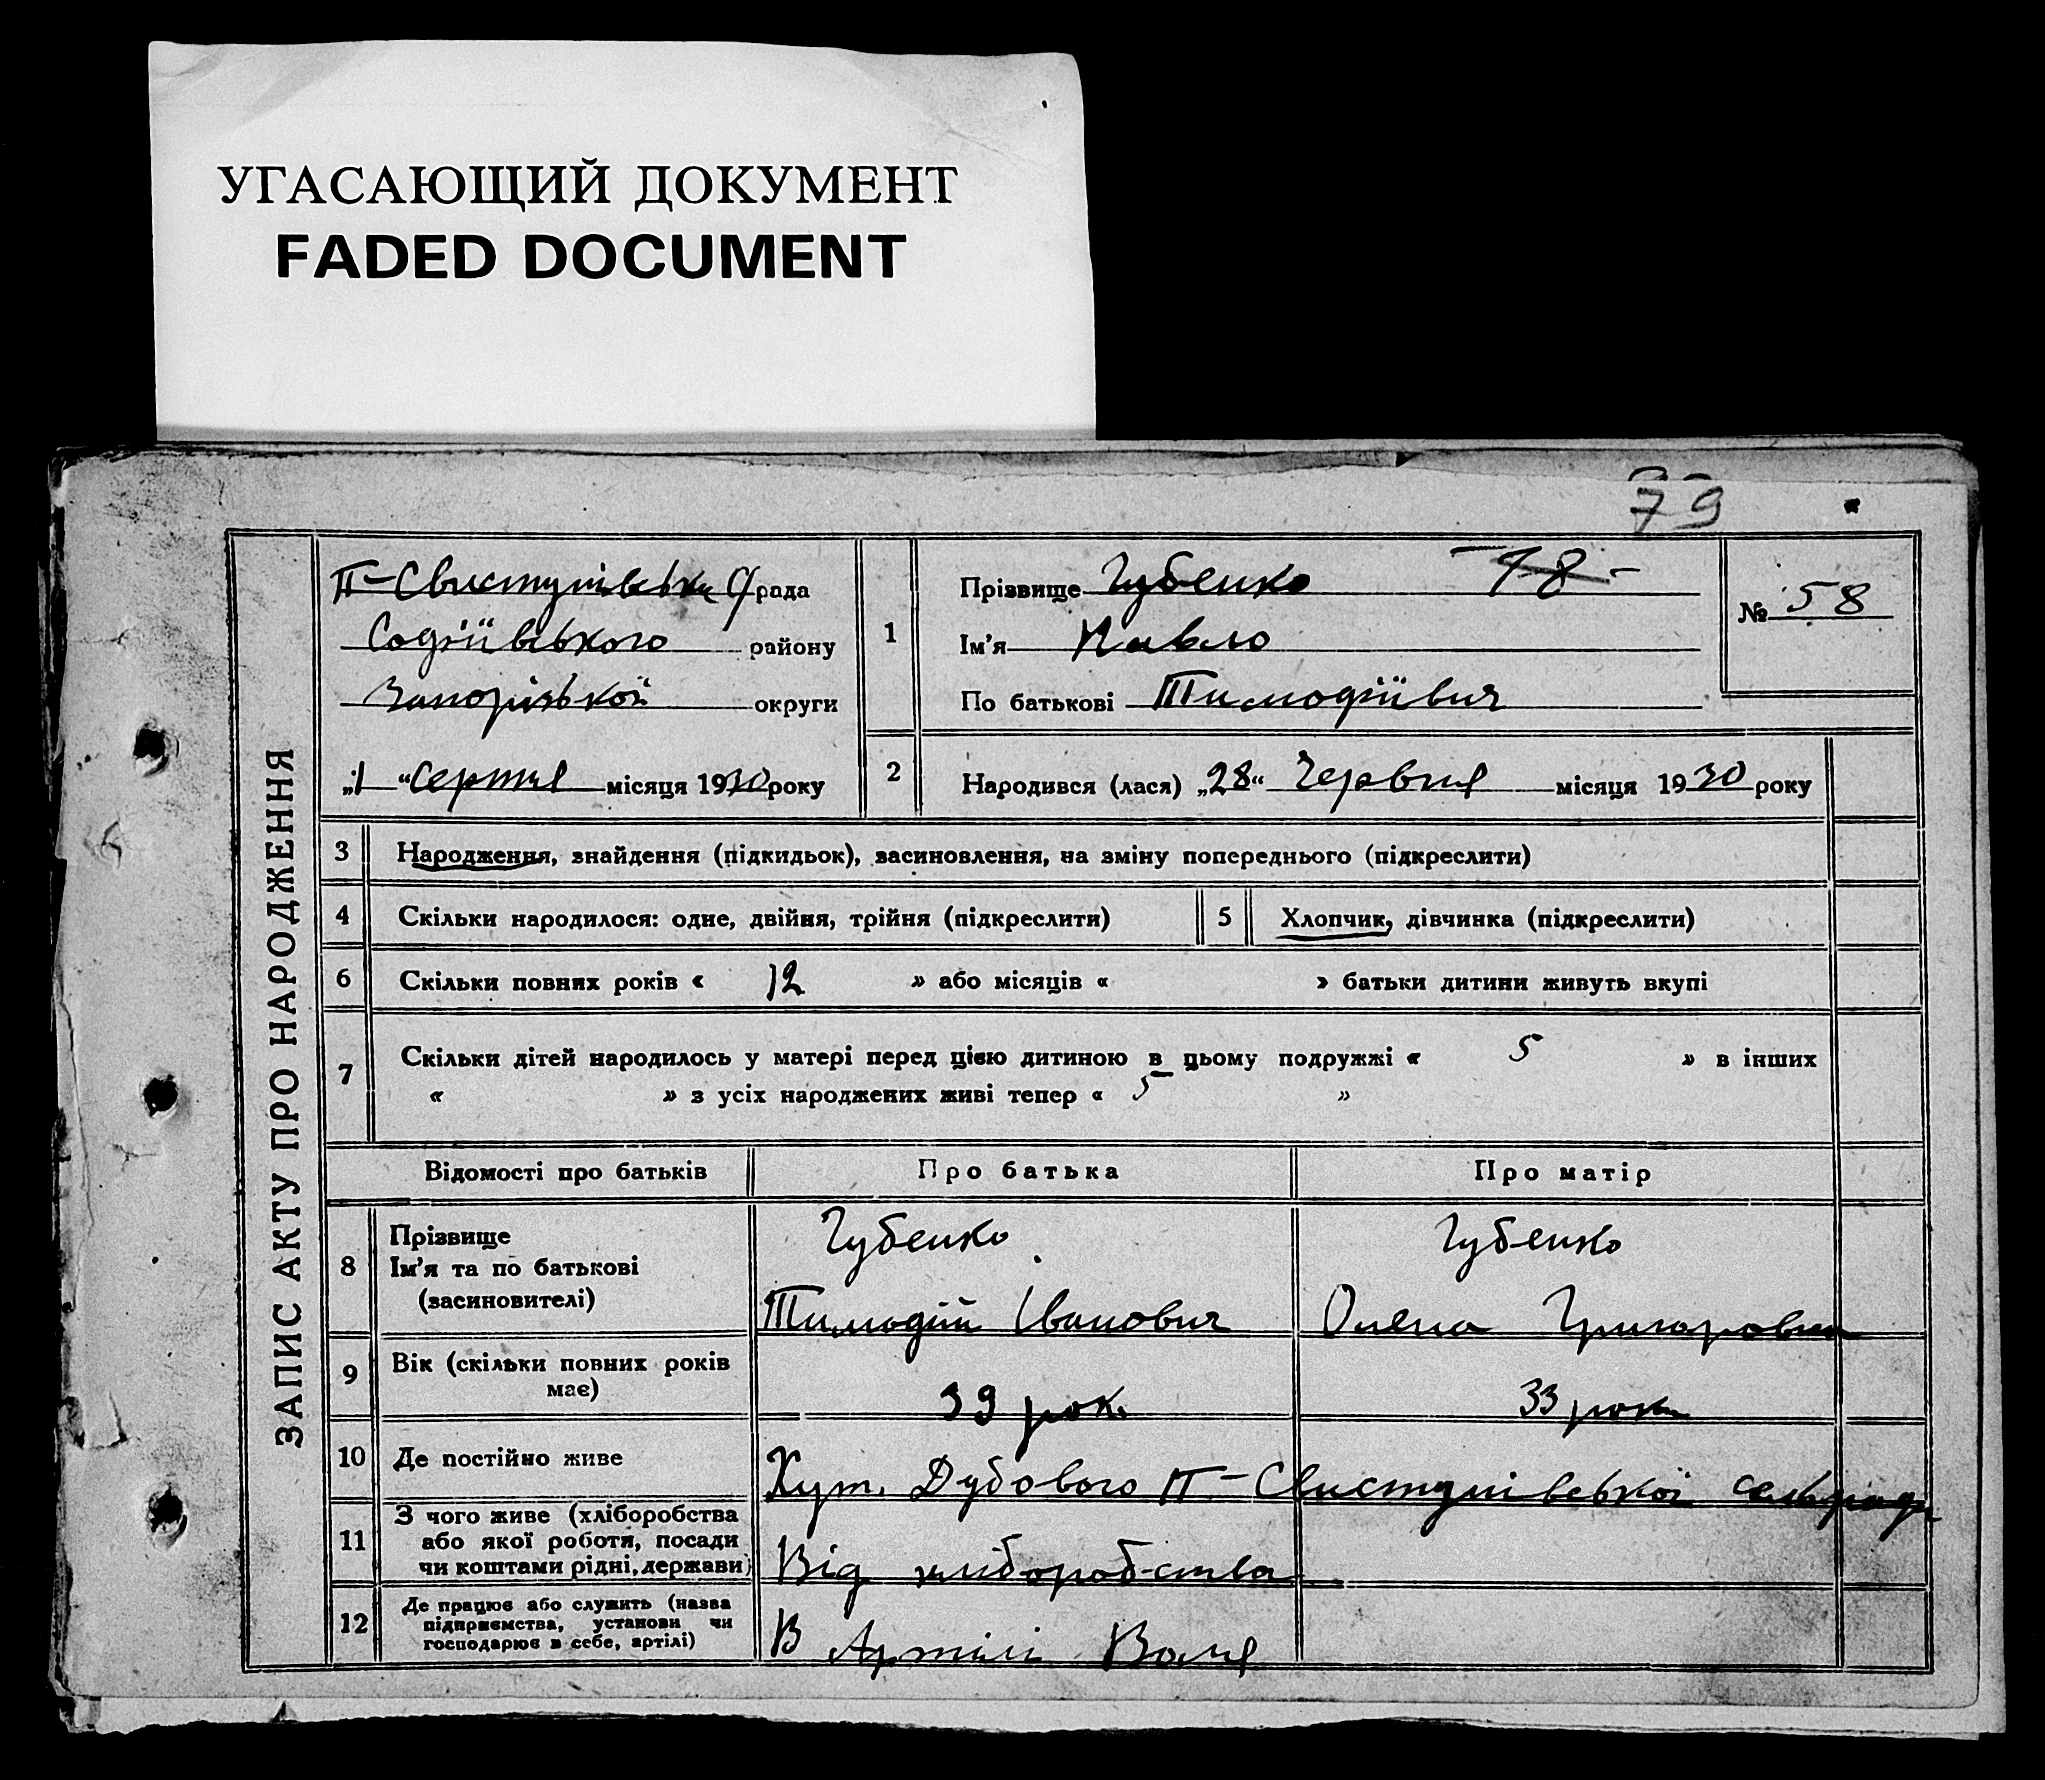 УГАСАЮЩИЙ ДОКУМЕНТ
FADED DOCUMENT
79
ЗАПИС АКТУ ПРО НАРОДЖЕННЯ
П-Свистунівська С/рада
Софіївського району
Запорізької округи
„1“ Серпня місяця 1930 року
1
Прізвище Губенко 18-
Ім'я Павло
По батькові Тимофіївич
№ 58
2
Народився (лася) „28“ Червня місяця 1930 року
3 Народження, знайдення (підкидьок), засиновлення, на зміну попереднього (підкреслити)
4 Скільки народилося: одне, двійня, трійня (підкреслити)
5 Хлопчик, дівчинка (підкреслити)
6 Скільки повних років « 12 » або місяців « » батьки дитини живуть вкупі
7 Скільки дітей народилось у матері перед цією дитиною в цьому подружжі « 5 » в інших
« » з усіх народжених живі тепер « 5 »
Відомості про батьків Про батька Про матір
8 Прізвище
Ім'я та по батькові
(засиновителі)
Губенко
Тимофій Іванович
Губенко
Олена Григоровна
9 Вік (скільки повних років
має)
39 рок.
33 роки
10 Де постійно живе
Хут. Дубового П-Свистунівської сельради
11 З чого живе (хліборобства
або якої роботи, посади
чи коштами рідні, держави)
Від хліборобства
12 Де працює або служить (назва
підприємства, установи чи
господарює в себе, артілі)
В Артілі Воля